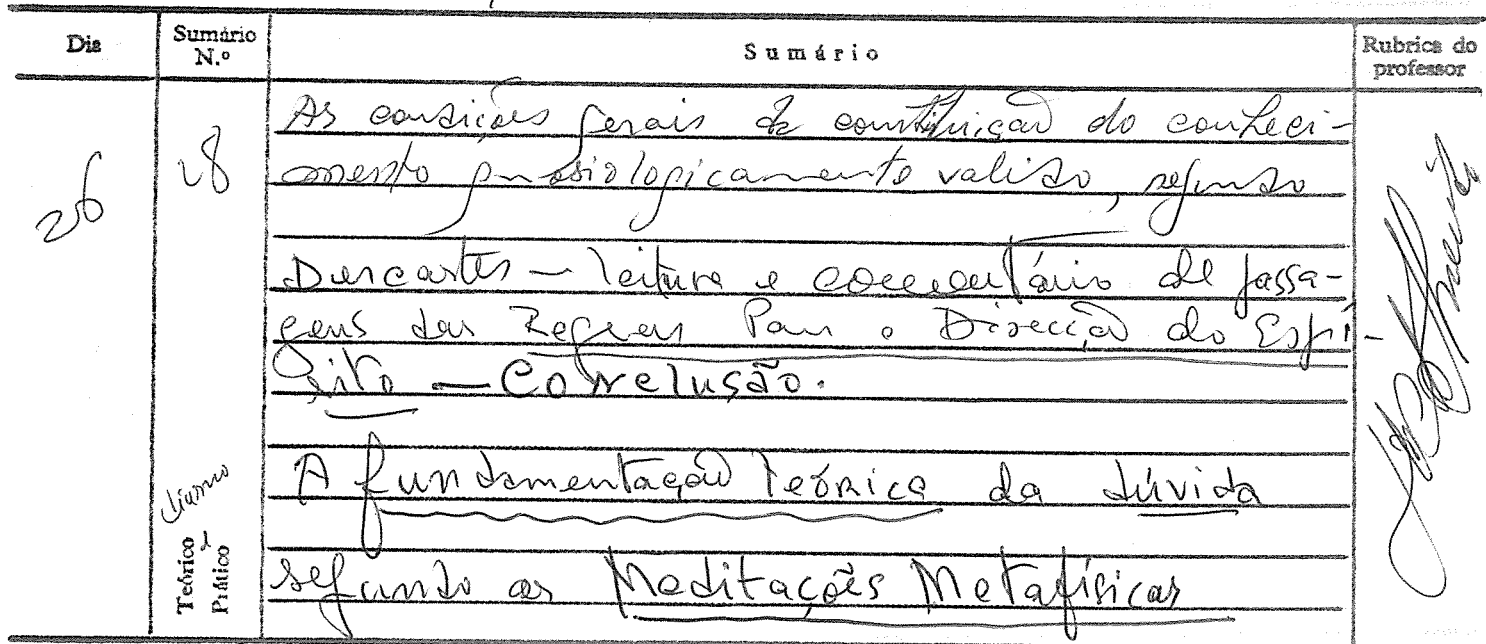 Dia Sumário N.º Sumário Rubrica do professor
26 28 As condições gerais de constituição do conheci-
mento gnosiologicamente valido, segundo
Descartes — leitura e comentário de passa-
gens das Regras Para a Direcção do Espí-
rito — Conclusão.
A fundamentação teórica da dúvida
segundo as Meditações Metafísicas
diurno
Teórico e Prático